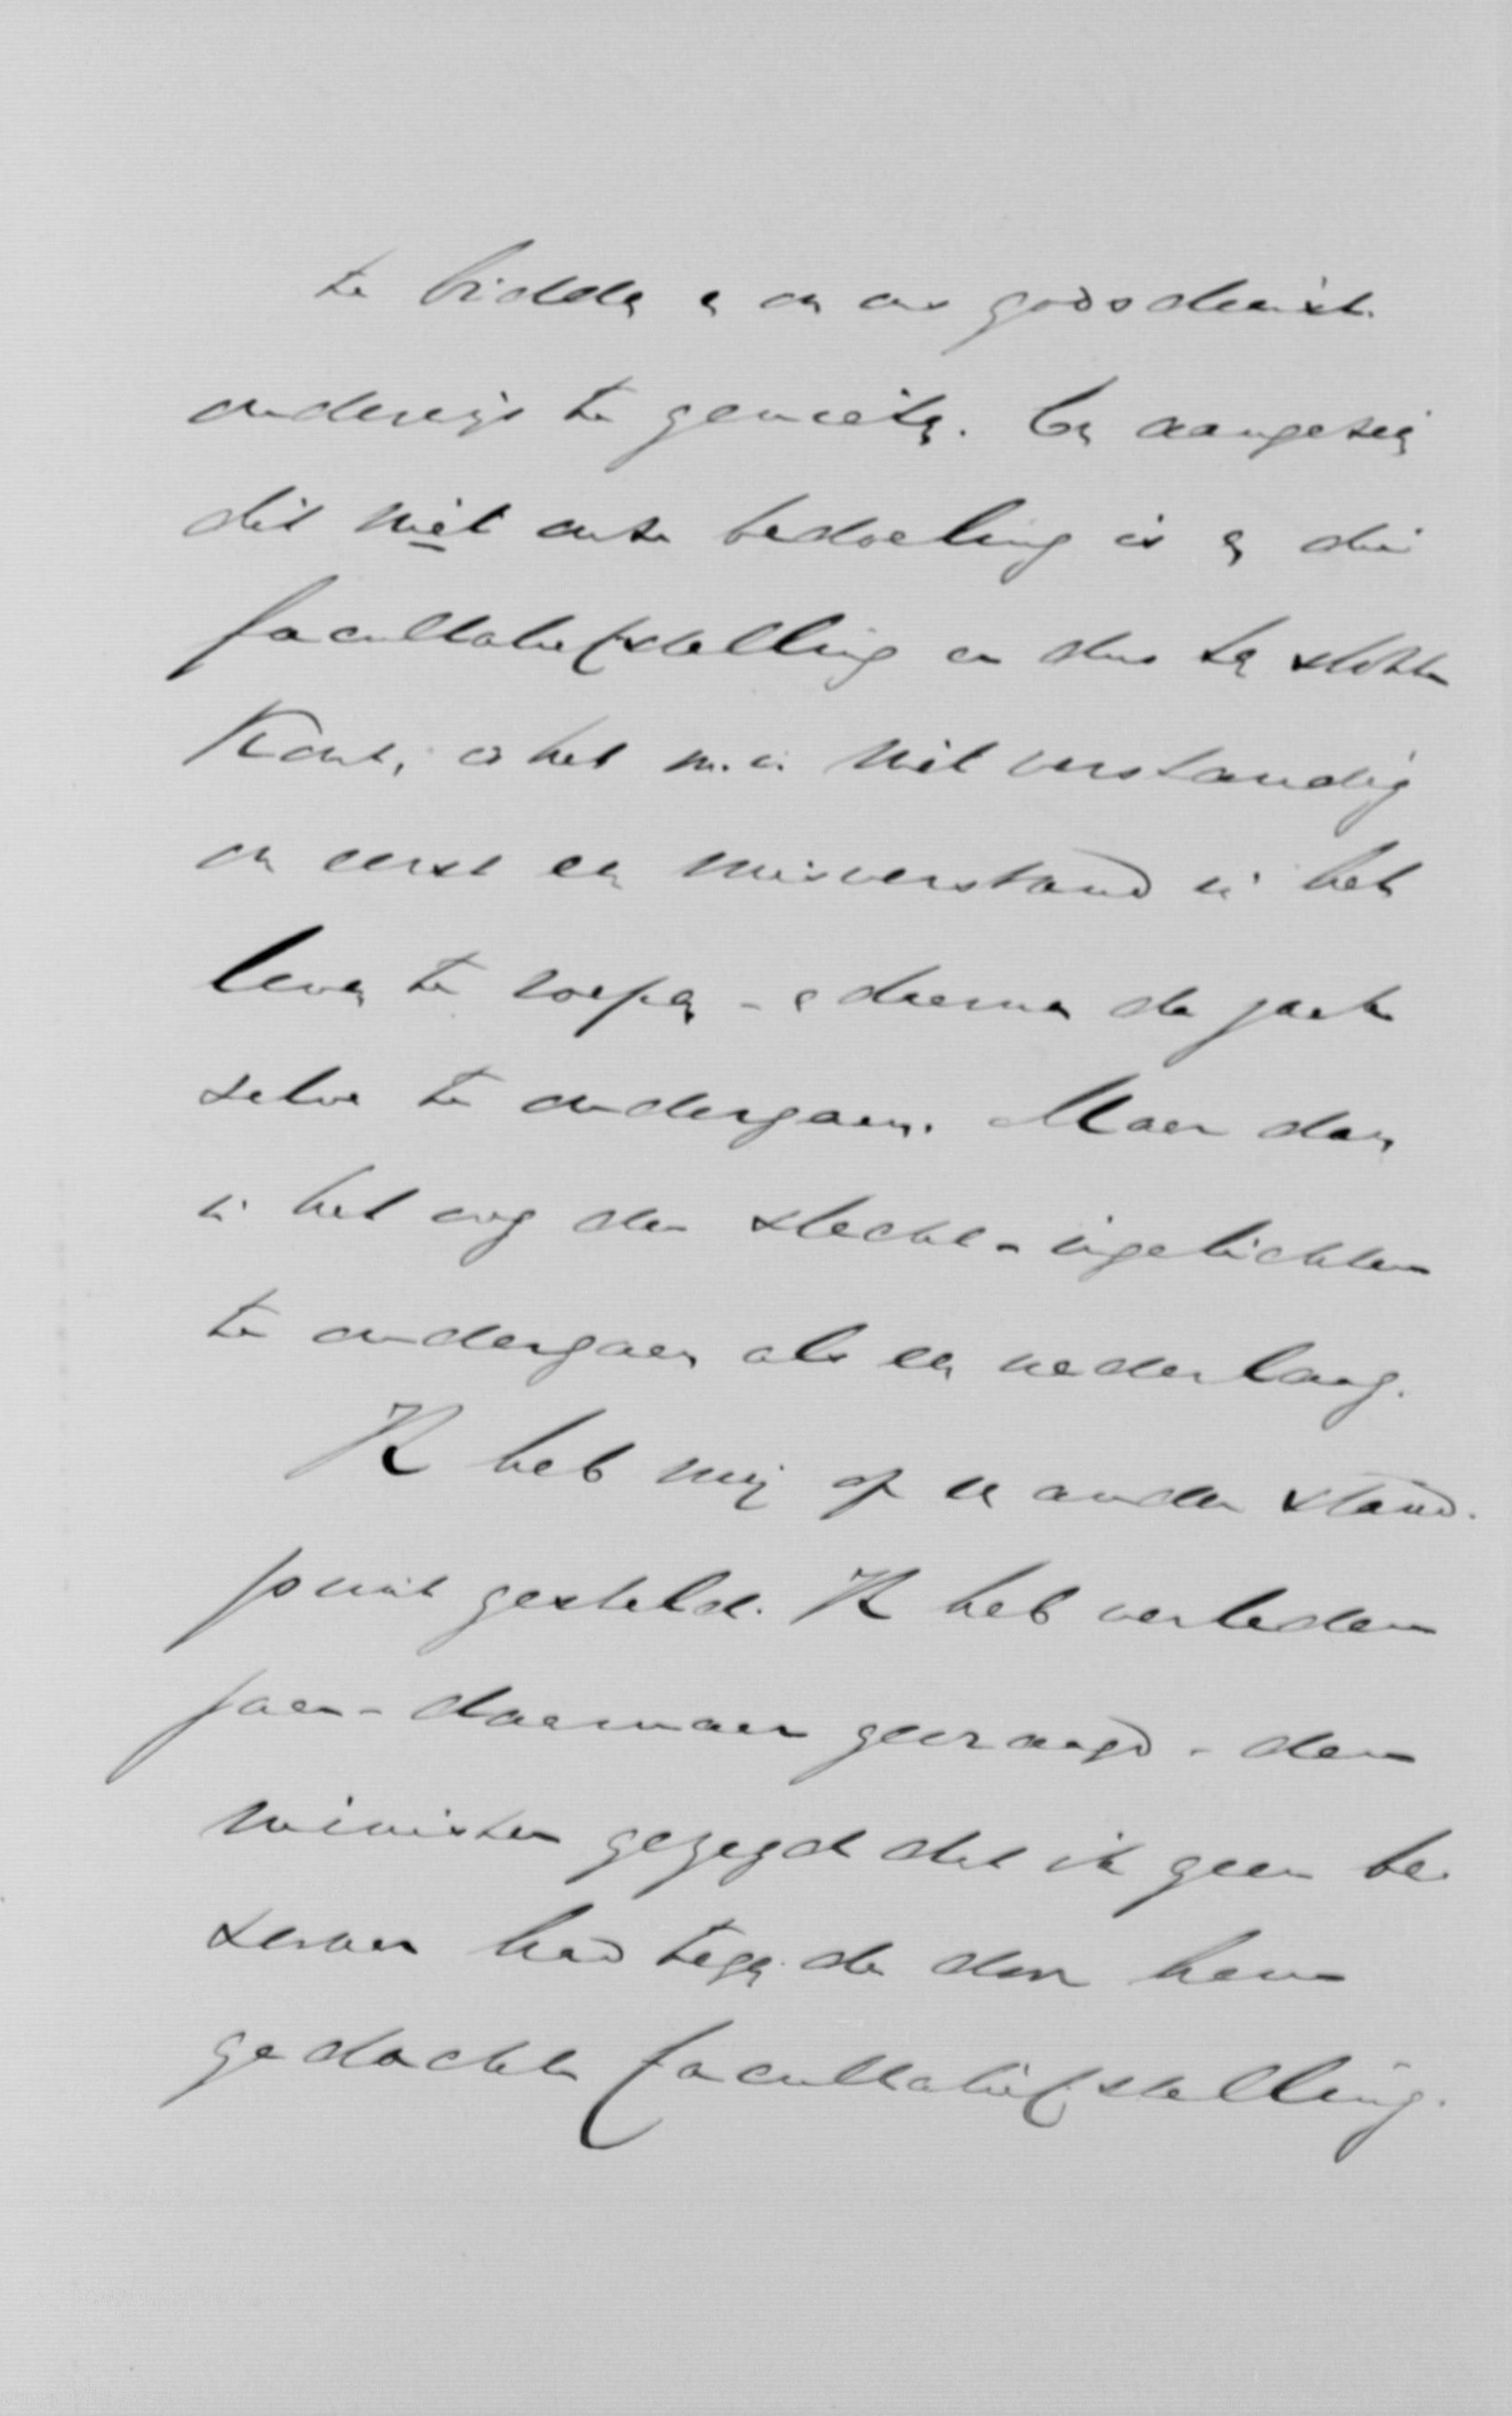 te bidden en om ons godsdienst-
onderwijs te genieten. En aangezien
dit niet onze bedoeling is en die
facultatiefstelling er dus ten slotte
komt, is het m.i. niet verstandig
om eerst een misverstand in het
leven te roepen - en daarna de zaak
zelve te ondergaan. Maar dan
in het oog der slecht-ingelichten
te ondergaan als een nederlaag.
Ik heb mij op een ander stand-
punt gesteld. Ik heb verleden
jaar - daarnaar gevraagd - den
minister gezegd dat ik geen be-
zwaar had tegen de door hem
gedachte facultatiefstelling.